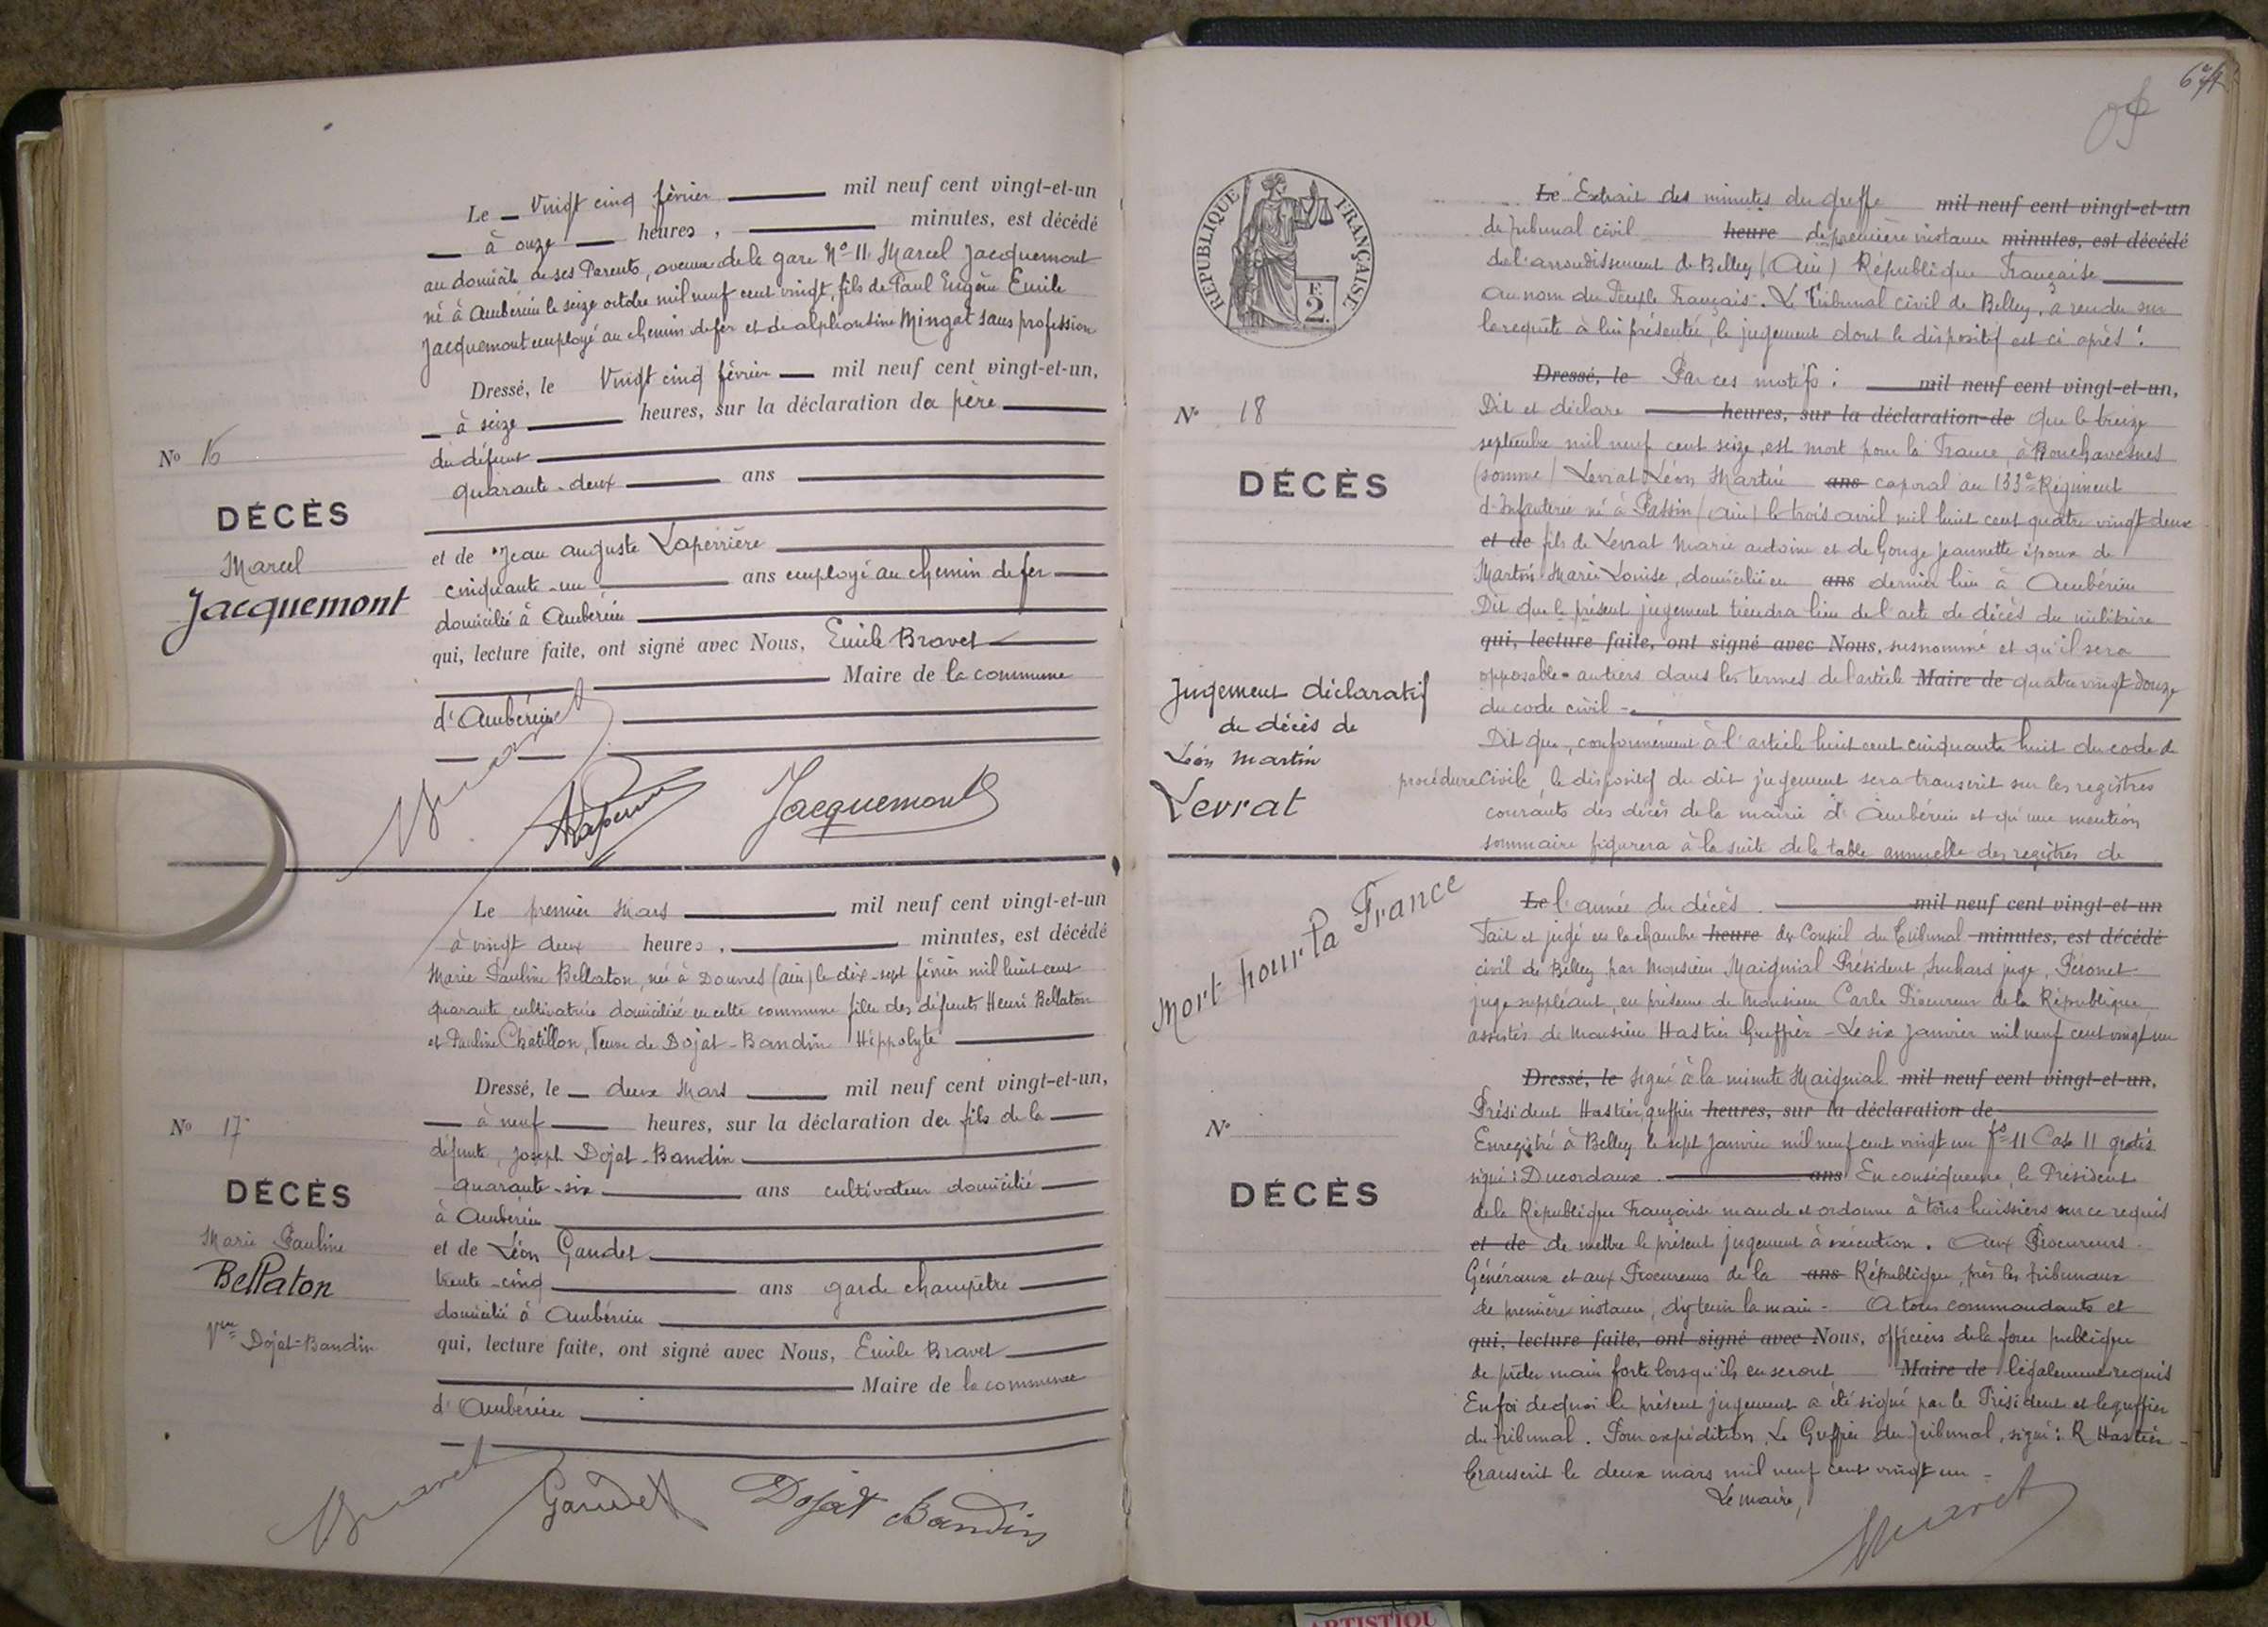 Le Vingt cinq février mil neuf cent vingt-et-un
à onze heures, minutes, est décédé
au domicile de ses Parents, avenue de la gare No 11, Marcel Jacquemont
né à Ambérieu le seize octobre mil neuf cent vingt, fils de Paul Eugène Emile
Jacquemont employé au chemin de fer et de alphonsine Mingat sans profession
Dressé, le Vingt cinq février mil neuf cent vingt-et-un,
à seize heures, sur la déclaration du père
du défunt
quarante-deux ans
et de Jean auguste Laperrière
cinquante-un ans employé au chemin de fer
domicilié à Ambérieu
qui, lecture faite, ont signé avec Nous, Emile Bravet
Maire de la commune
d'Ambérieu
No 16
DÉCÈS
Marcel
Jacquemont
Jacquemont
Le premier Mars mil neuf cent vingt-et-un
à vingt deux heures, minutes, est décédé
Marie Pauline Bellaton, née à Douvres (ain) le dix-sept février mil huit cent
quarante, cultivatrice domiciliée en cette commune fille des défunts Henri Bellaton
et Pauline Chatillon, Veuve de Dojat-Bandin Hippolyte
Dressé, le deux Mars mil neuf cent vingt-et-un,
à neuf heures, sur la déclaration de fils de la
défunte, Joseph Dojat-Bandin
quarante-six ans cultivateur domicilié
à Ambérieu
et de Léon Gaudet
trente-cinq ans garde champêtre
domicilié à Ambérieu
qui, lecture faite, ont signé avec Nous, Emile Bravet
Maire de la commune
d'Ambérieu
No 17
DÉCÈS
Marie Pauline
Bellaton
Vve Dojat-Bandin
Bravet Gaudet Dojat Bandin
RÉPUBLIQUE FRANÇAISE
F.
2.
Le Extrait des minutes du greffe mil neuf cent vingt-et-un
du tribunal civil heure de première instance minutes, est décédé
de l'arrondissement de Belley (Ain) République Française
au nom du Peuple Français. Le Tribunal civil de Belley, a rendu sur
la requête à lui présentée, le jugement dont le dispositif est ci après :
Dressé, le Par ces motifs : mil neuf cent vingt-et-un,
Dit et déclare heures, sur la déclaration de que le treize
septembre mil neuf cent seize, est mort pour la France, à Bouchavesnes
(somme) Levrat Léon Martin ans caporal au 133e Régiment
d'Infanterie né à Passin (ain) le trois avril mil huit cent quatre vingt deux
et de fils de Levrat Marie antoine et de Gonge Jeannette époux de
Martin Marie Louise, domicilié en ans dernier lieu à Ambérieu
Dit que le présent jugement tiendra lieu de l'acte de décès du militaire
qui, lecture faite, ont signé avec Nous, susnommé et qu'il sera
opposable autiers dans les termes de l'article Maire de quatre vingt douze
du code civil
Dit que, conformément à l'article huit cent cinquante huit du code de
procédure civile, le dispositif du dit jugement sera transcrit sur les registres
courants des décès de la mairie d'Ambérieu et qu'une mention
sommaire figurera à la suite de la table annuelle des registres de
No 18
DÉCÈS
Jugement déclaratif
de décès de
Léon Martin
Levrat
Mort pour la France
Le l'année du décès. mil neuf cent vingt-et-un
Fait et jugé en la chambre heure du Conseil du Tribunal minutes, est décédé
civil de Belley par Monsieur Maignial Président, Suchard juge, Péronet
juge suppléant, en présence de Monsieur Carle Procureur de la République
assistés de Monsieur Hastier Greffier - Le six Janvier mil neuf cent vingt un
Dressé, le signé à la minute Maignial mil neuf cent vingt-et-un,
Président Hastier, greffier heures, sur la déclaration de
Enregistré à Belley le sept Janvier mil neuf cent vingt un fo 11 Case 11 gratis
signé : Ducordaux. ans En conséquence, le Président
de la République Française mande et ordonne à tous huissiers sur ce requis
et de de mettre le présent jugement à exécution. Aux Procureurs
Généraux et aux Procureurs de la ans République, près les tribunaux
de première instance, d'y tenir la main - A tous commandants et
qui, lecture faite, ont signé avec Nous, officiers de la force publique
de prêter main forte lorsqu'ils en seront Maire de légalement requis
En foi de quoi le présent jugement a été signé par le Président et le greffier
du tribunal. Pour expédition, Le Greffier du Tribunal, signé : R Hastier
Transcrit le deux mars mil neuf cent vingt un
Le maire,
Bravet
No
DÉCÈS
ARTISTIQU